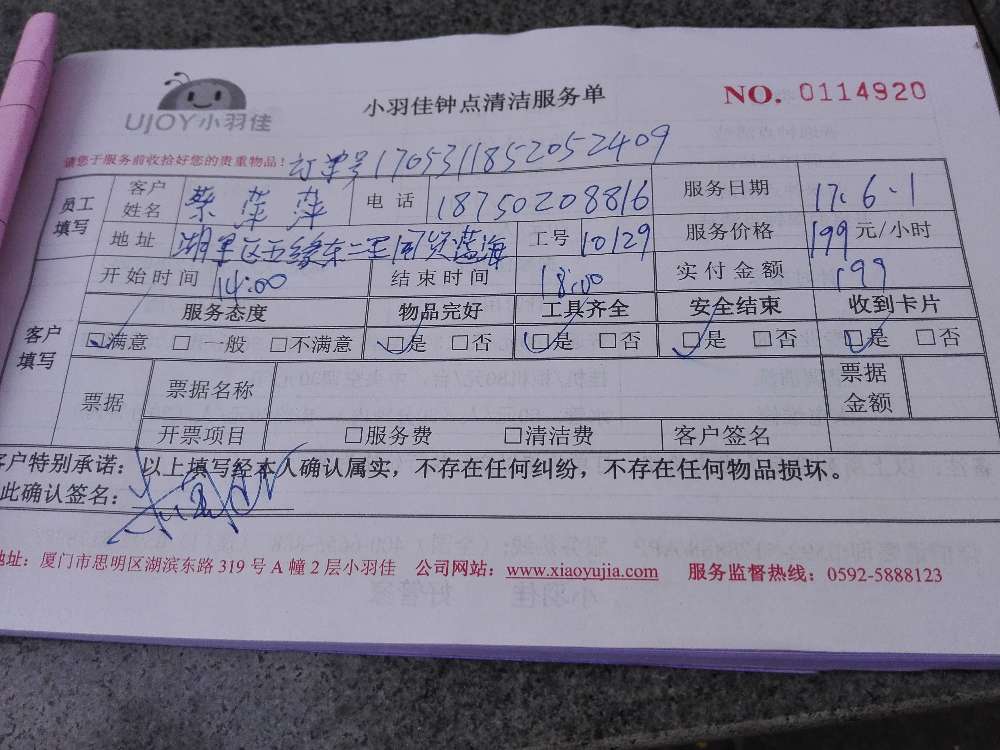 UJOY小羽佳
小羽佳钟点清洁服务单
NO. 0114920
请您于服务前收拾好您的贵重物品! 订单号170531185205 2409
员工填写 客户姓名 蔡萍萍 电话 18750208816 服务日期 17.6.1
地址 湖里区五缘东二里国贸蓝海 工号 10129 服务价格 199元/小时
客户填写 开始时间 14:00 结束时间 18:00 实付金额 199
服务态度 物品完好 工具齐全 安全结束 收到卡片
☑满意 □一般 □不满意 ☑是 □否 ☑是 □否 ☑是 □否 ☑是 □否
票据 票据名称 票据金额
开票项目 □服务费 □清洁费 客户签名
客户特别承诺:以上填写经本人确认属实,不存在任何纠纷,不存在任何物品损坏。
此确认签名:
地址:厦门市思明区湖滨东路319号A幢2层小羽佳 公司网站:www.xiaoyujia.com 服务监督热线:0592-5888123